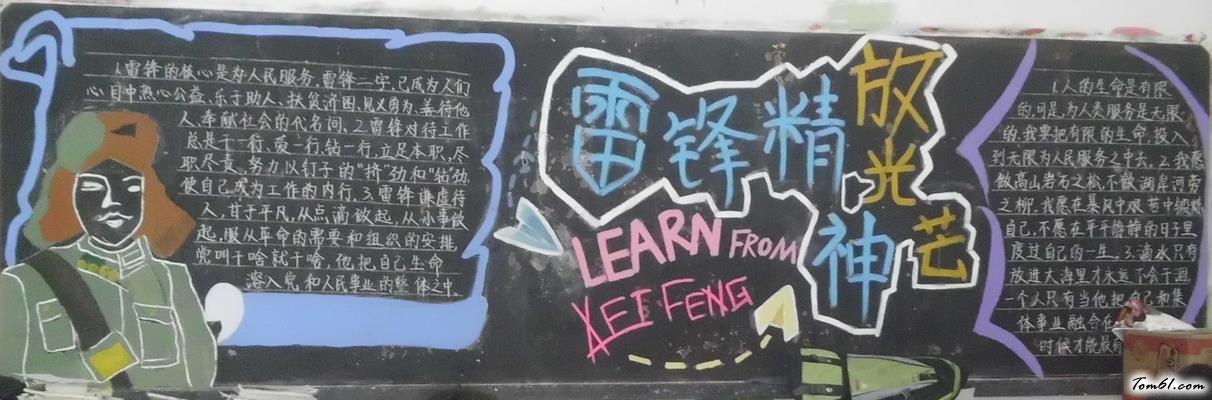 1.雷锋的核心是为人民服务.雷锋一字,已成为人们
心目中热心公益、乐于助人、扶贫济困、见义勇为、善待他
人、奉献社会的代名词、2.雷锋对待工作
总是干一行、爱一行、钻一行、立足本职、尽
职尽责,努力以钉子的"挤"劲和"钻"劲
使自己成为工作的内行.3.雷锋谦虚待
人,甘于平凡,从点滴做起,从小事做
起,服从革命的需要和组织的安排
党叫干啥就干啥,他把自己生命
溶入党和人民事业的整体之中.
雷锋精
神
放光芒
LEARN FROM
LEI FENG
1.人的生命是有限
的,可是,为人类服务是无限
的,我要把有限的生命,投入
到无限为人民服务之中去、2.我愿
做高山岩石之松,不做湖岸河旁
之柳.我愿在暴风中艰苦中锻炼
自己,不愿在平平静静的日子里
度过自己的一生。3.滴水只有
放进大海里才永远不会干涸,
一个人只有当他把自己和集
体事业融合在
时候才能最有
Tom61.com